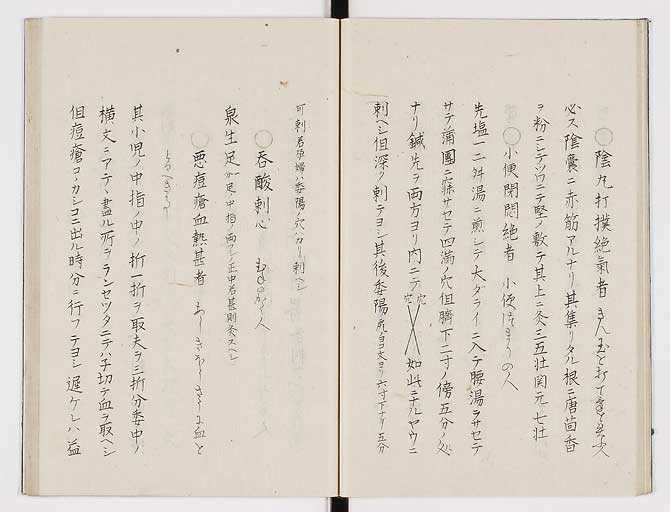 ○陰丸打撲絶氣者 きん玉を打て
必ス陰嚢ニ赤筋アルナリ其集リタル根ニ唐茴香
ヲ粉ニシテツハニテ堅メ敷テ其上ニ灸三五壮関元七壮
○小便閉悶絶者 小便つまりの人
先塩一二舛湯ニ煎シテ大タライニ入テ腰湯ヲサセテ
サテ蒲團ニ寐サセテ四滿ノ穴但臍下二寸ノ傍五分ノ処
ナリ鍼先ヲ両方ヨリ内ニテ穴穴 如此ニナルヤウニ
刺ヘシ但深ク刺テヨシ其後委陽 ヨリ六寸下リ五分
可刺若孕婦ハ委陽ノ穴ハカリ刺ヘシ
○呑酸刺心 むねの 人
泉生足 足ノ中指ノ 正中若甚則灸スヘシ
○悪痘瘡血熱甚者
とるへき
其小児ノ中指ノ中ノ折一折ヲ取夫ヲ三折分委中ノ
横文ニアテ盡ル所ヲランセツタニテハ子切テ血ヲ取ヘシ
但痘瘡コヽカシコニ出ル時分ニ行フテヨシ遅ケレハ益